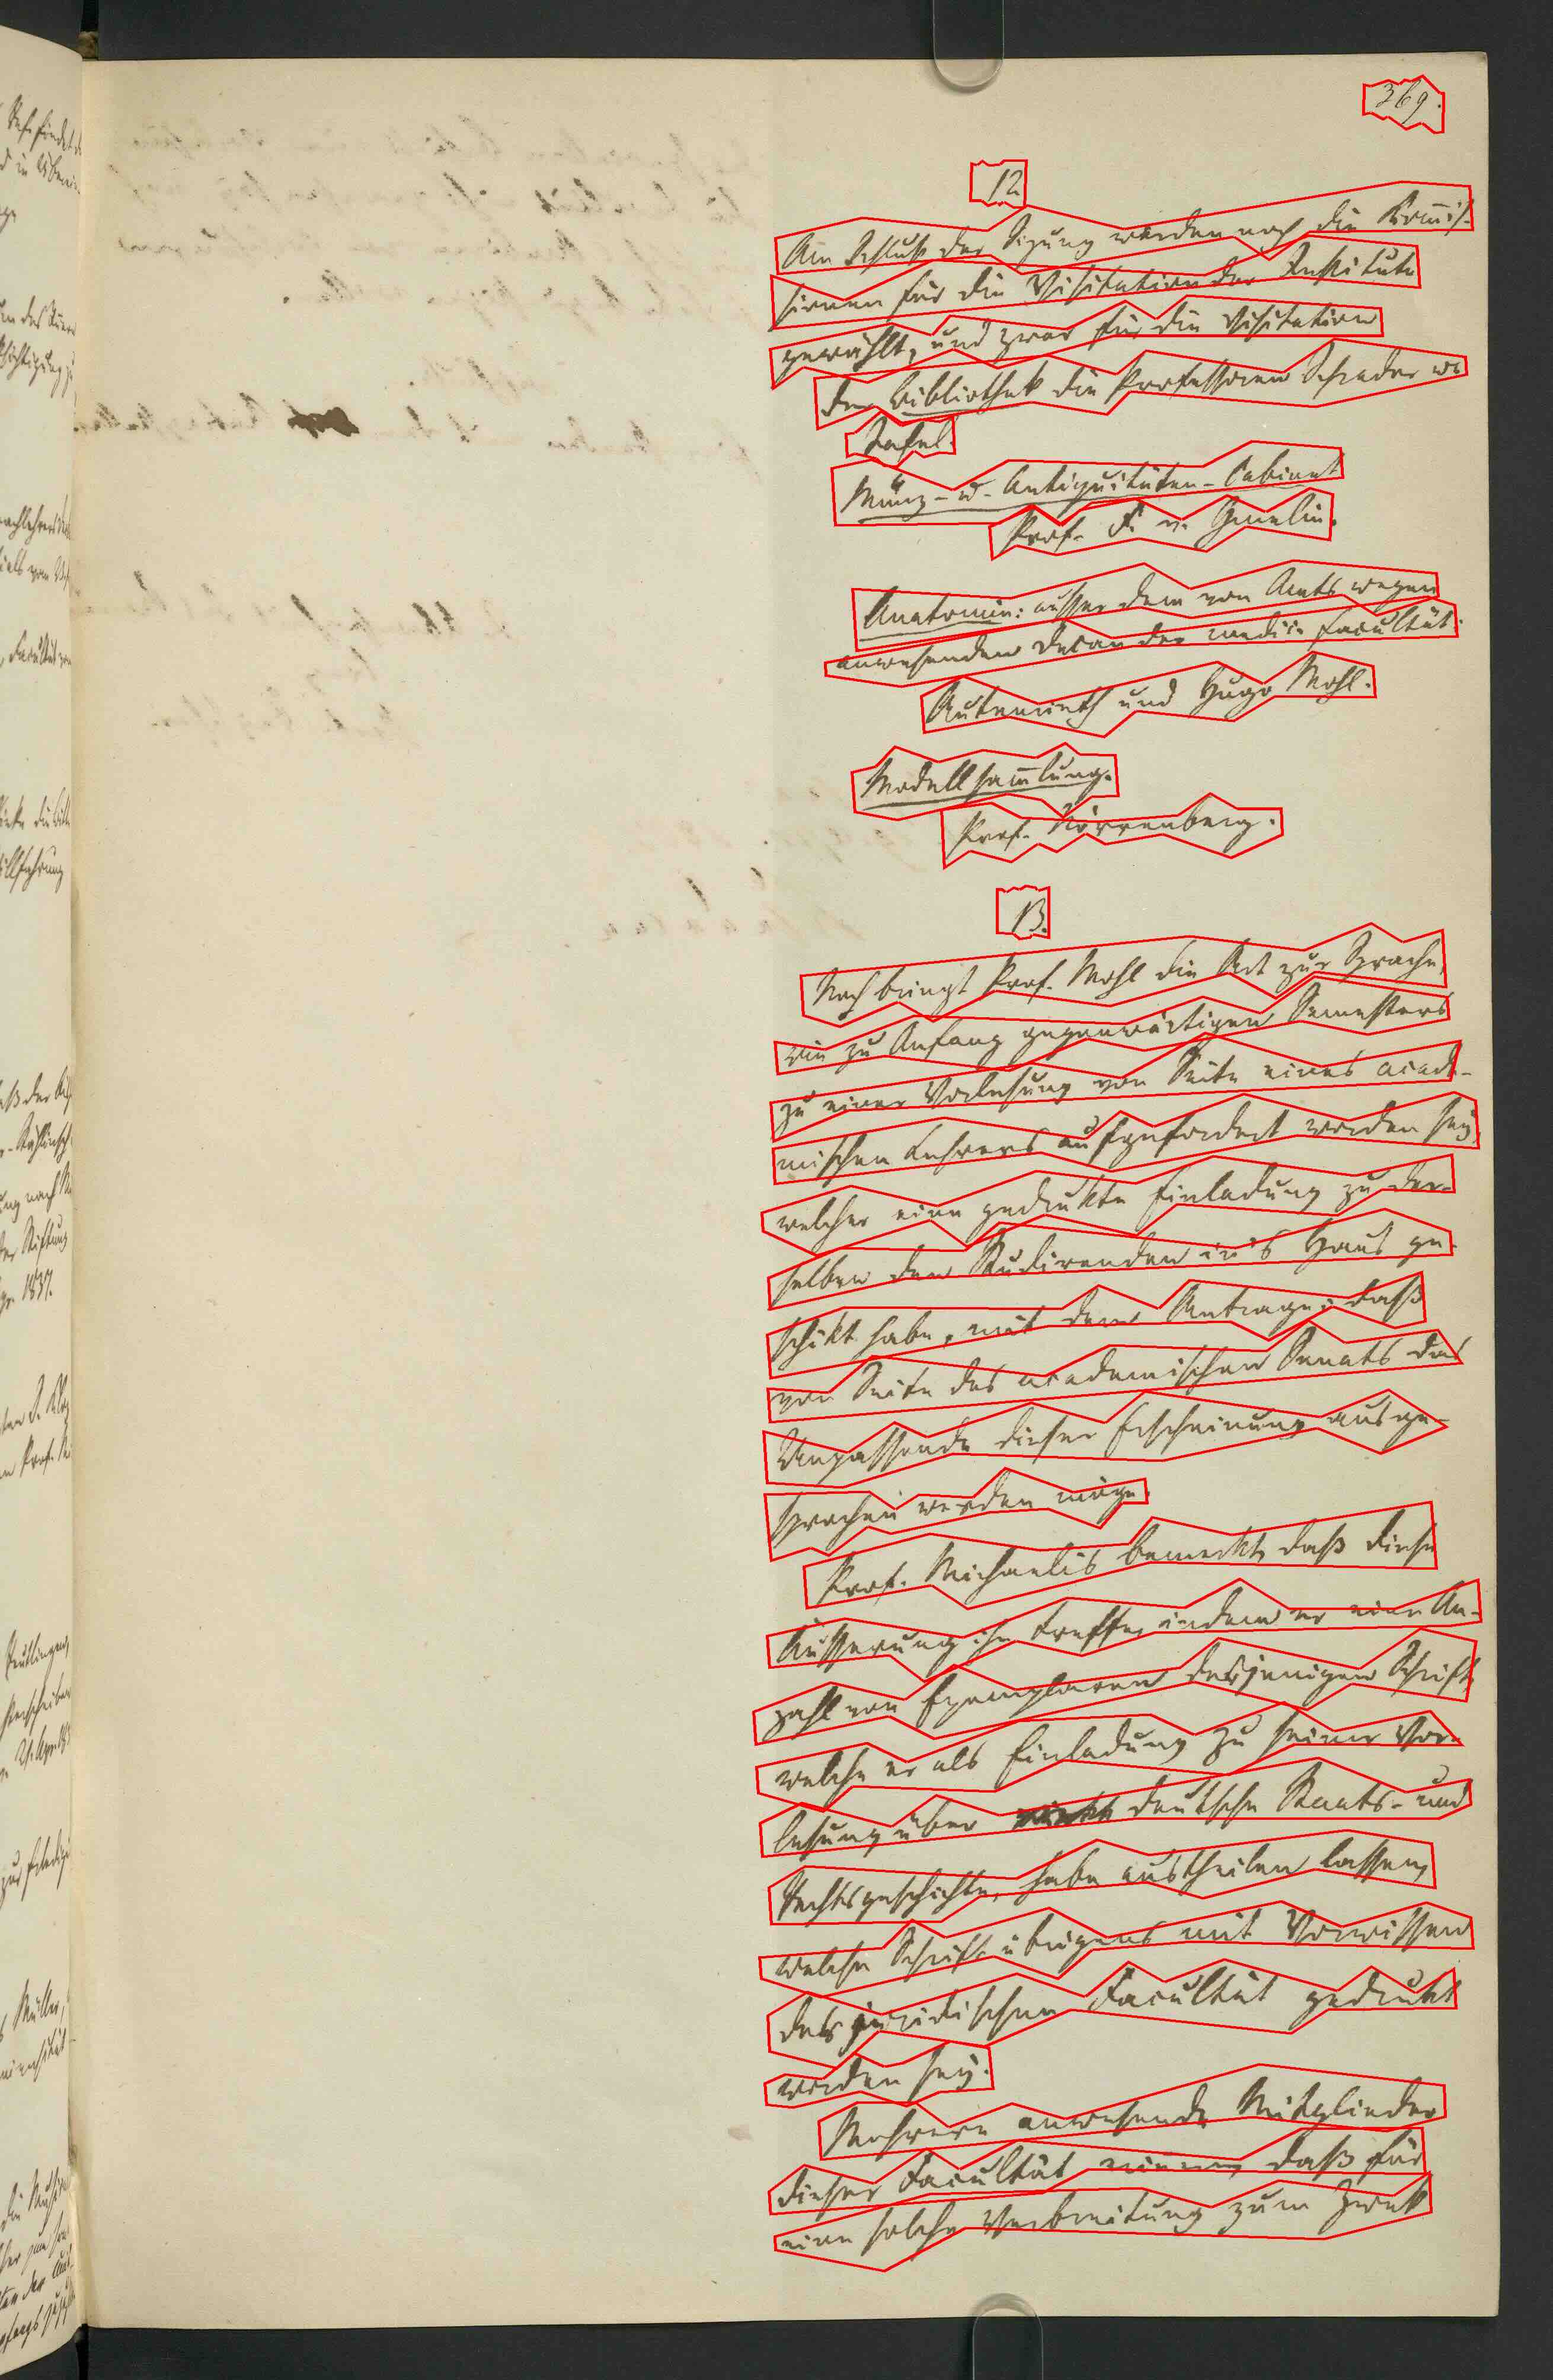 369.
12
Am Schluß der Sizung werden noch die Kom̅is-
sionen für die Visitation der Institute
gewählt, und zwar für die Visitation
der Bibliothek die Professoren Schrader u.
Tafel.
Münz- u. Antiquitäten-Cabinet
Prof. F. v. Gmelin.
Anatomie: ausser dem von Amts wegen
anwesenden Decan der medic. Facultät.
Autenrieth und Hugo Mohl.
Modellsam̅lung.
Prof. Nörrenberg.
13.
Noch bringt Prof. Mohl die Art zur Sprache,
wie zu Anfang gegenwärtigen Semesters
zu einer Vorlesung von Seite eines acade-
mischen Lehrers aufgefordert worden sey,
welcher eine gedrukte Einladung zu der-
selben den Studirenden in's Haus ge-
schikt habe, mit dem Antrage: daß
von Seite des academischen Senats das
Unpassende dieser Erscheinung ausge-
sprochen werden möge.
Prof. Michaelis bemerkt, daß diese
Äusserung ihn treffe, indem er eine An-
zahl von Exemplaren derjenigen Schrift,
welche er als Einladung zu seiner Vor-
lesung über deutsche Staats- und
Rechtsgeschichte, habe austheilen lassen,
welche Schrift übrigens mit Vorwissen
der juridischen Facultät gedrukt
worden sey.
Mehrere anwesende Mitglieder
dieser Facultät daß für
eine solche Verbreitung zum Zwek